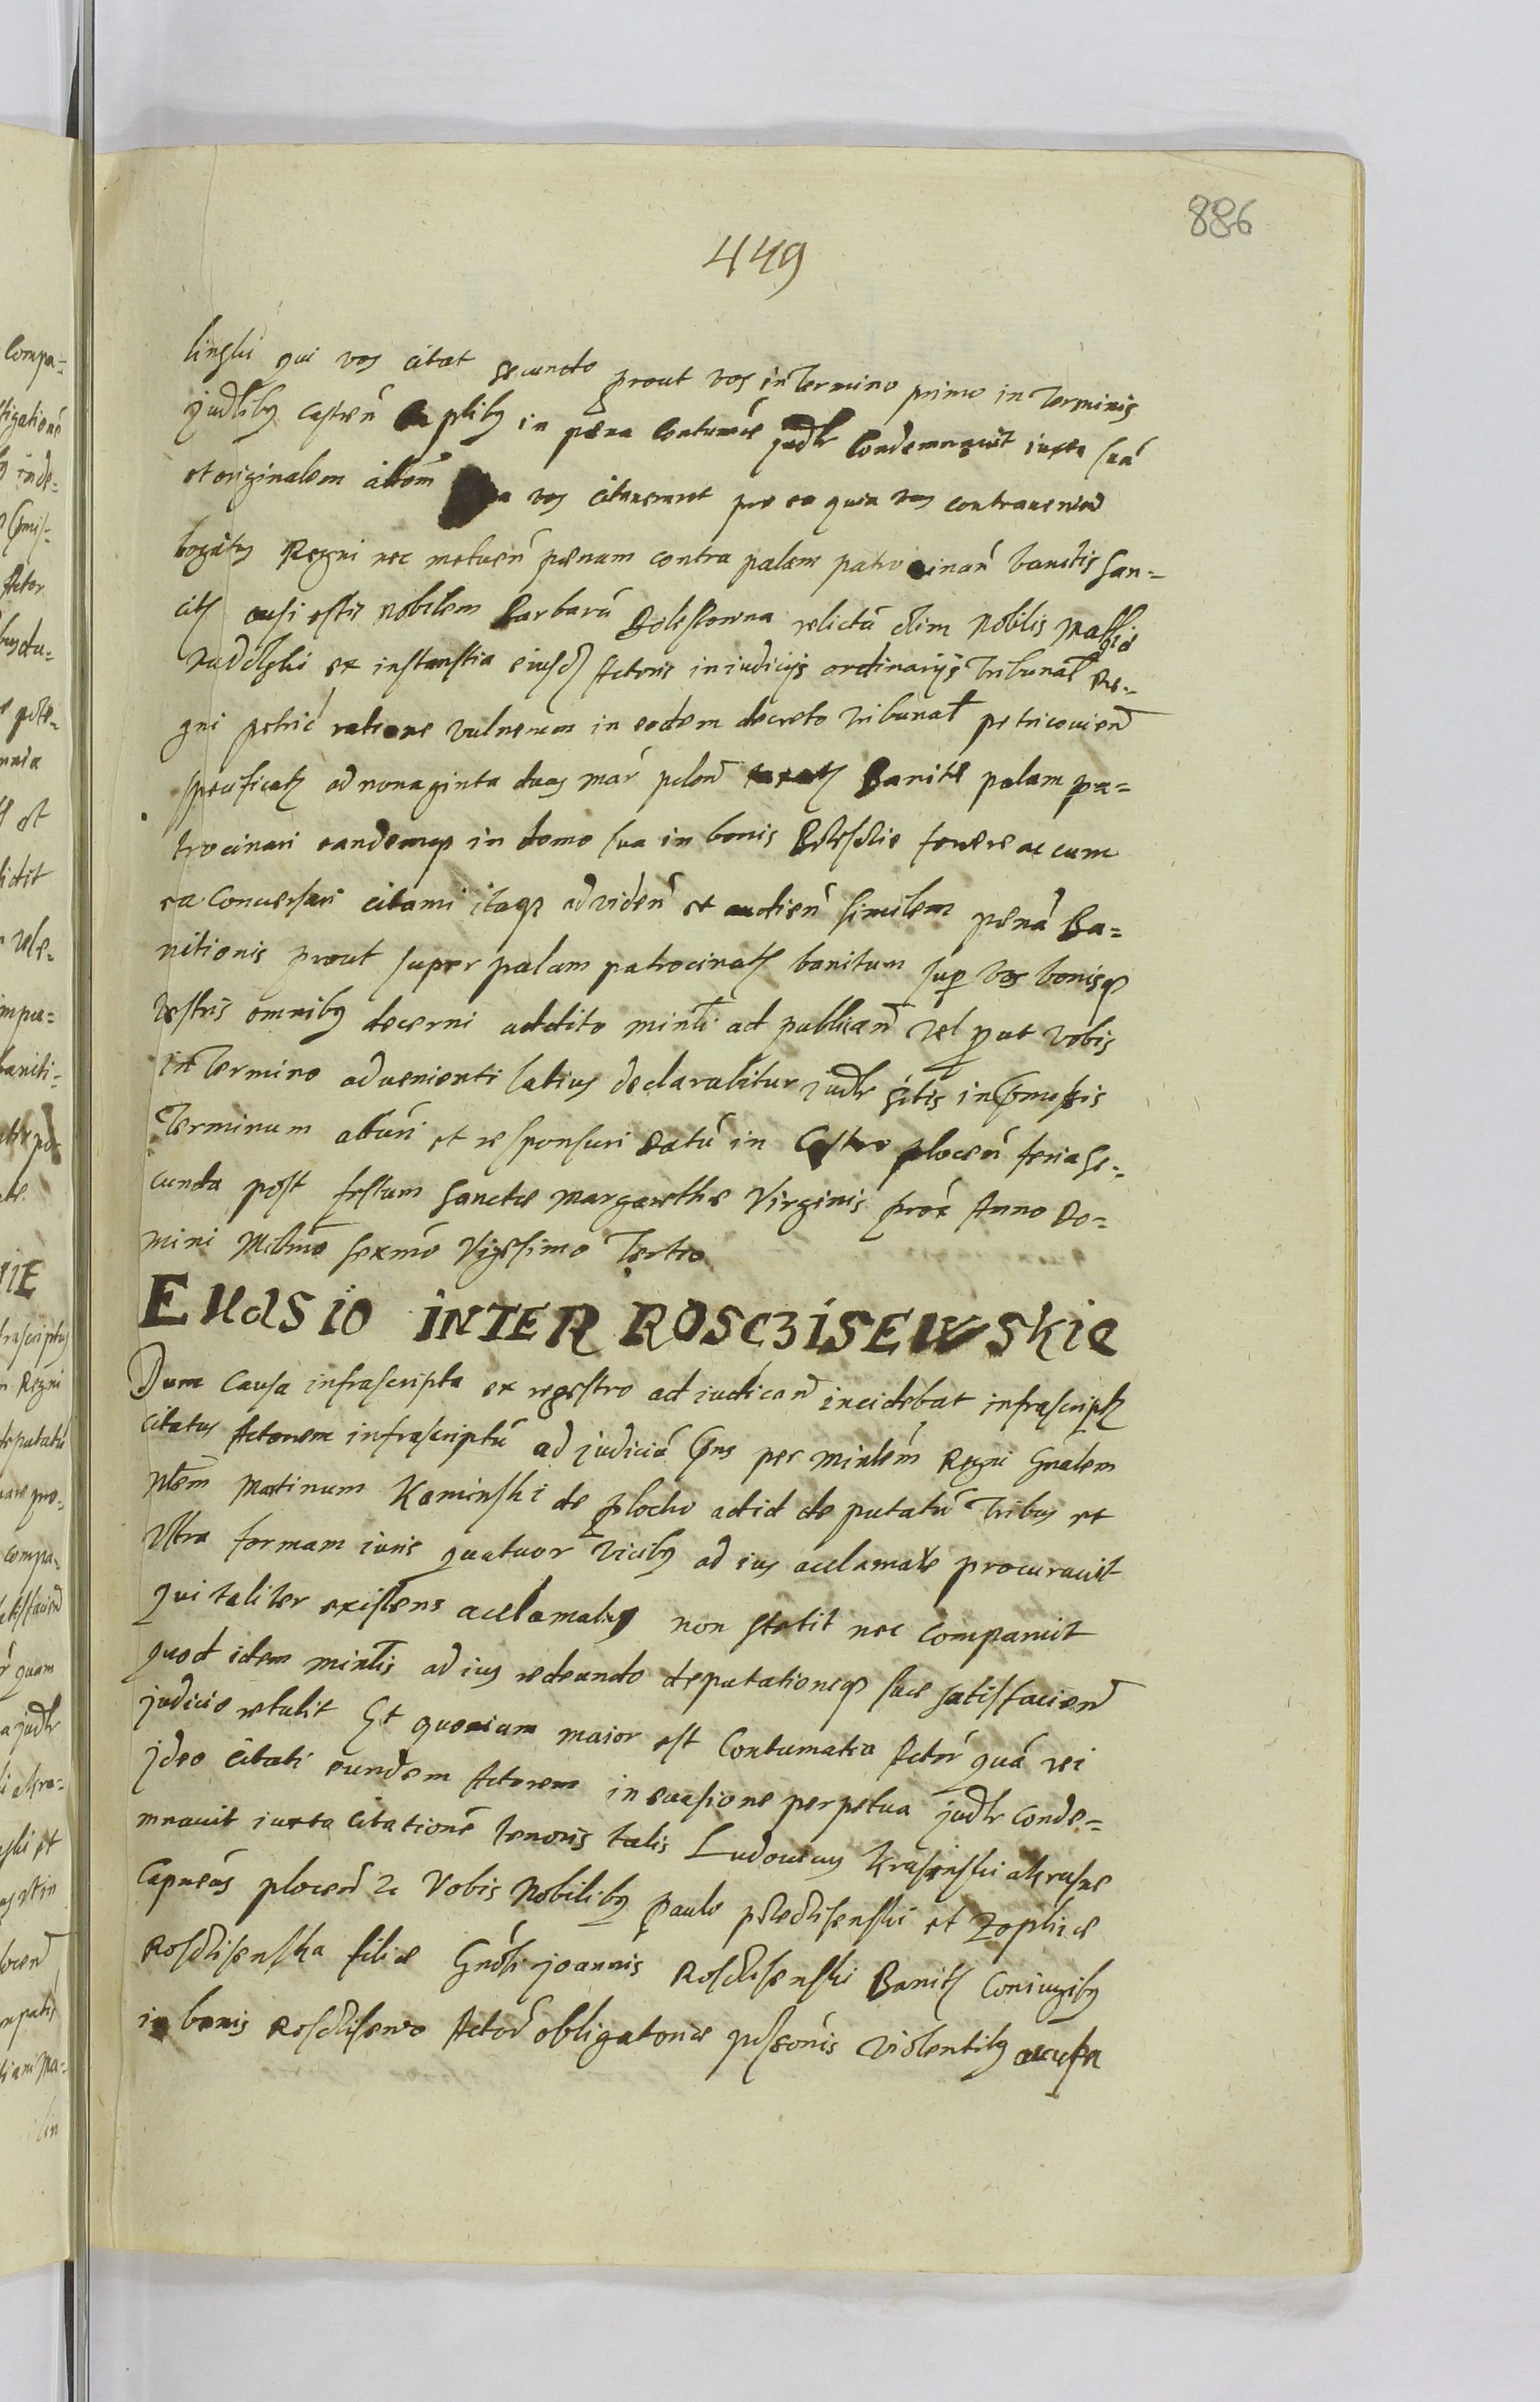 886
449
linski qui vos citat secundo prout vos in Termino primo in Terminis
judlibꝫ castreń plibꝫ in pæna Contumáe judłr Condemnavit iuxta suá
et originalem citóem vos citaverunt pro eo quia vos contraveniend
legibꝫ Regni nec metueń pænam contra palam patrocinań banitis San-
cit ausi estis nobilem Barbará Bolestowna relictá olim Nobilis Mathiæ
ex instanstia eiusd Actoris in iudicijs ordinarijs Tribunał Re-
gni petrić ratione vulnerum in eodem decreto Tribunał petricoviend
specificat ad nonaginta duas mar polon taxat Banite palam pa-
trocinari eandemqꝫ in domo sua in bonis fovere ac cum
ea Conversari citami itaqꝫ ad videń et audień similem pæná Ba-
nitionis prout super palam patrocinat banitum sup vos bonisqꝫ
vestris omnibꝫ decerni addito minłi ad publicand vel put vobis
in Termino advenienti latius declarabitur judłr sitis in pmissis
Terminum attuń et responsuri Datú in Castro ploceń feria se-
cunda post festum Sanctæ Margarethæ Virginis próx Anno Do-
mini Millmo sexmo Vigesimo Tertio
EUASIO INTER ROSCZISEWSKIE
Dum Causa infrascripta ex regestro ad iudicand incidebat infrascript
citatus Actorem infrascriptú ad judiciú pns per minłem Regni Gnalem
Nłem Martinum Kaminski de plocko ad id deputatú Tribus et
Ultra formam iuris quatuor Vicibꝫ ad ius acclamare procuravit
qui taliter existens acclamatus non stetit nec comparuit
quod idem minłis ad ius redeundo deputationeqꝫ suæ satisfaciend
judicio retulit Et quoniam maior est Contumatia Actoŕ quá rei
jdeo Citati eundem Actorem in evasione perpetua judłr conde-
mnavit iuxta citationé tenoris talis Ludovicus Krasinski a Krasne
Capneús plocend &c Vobis Nobilibꝫ paulo et Zophiæ
Rosczisenska filiæ Gnósi joannis Rosczisenski Banit Coniugibꝫ
in bonis Rosczisewo Actor obligatoriæ pssonis violentibꝫ